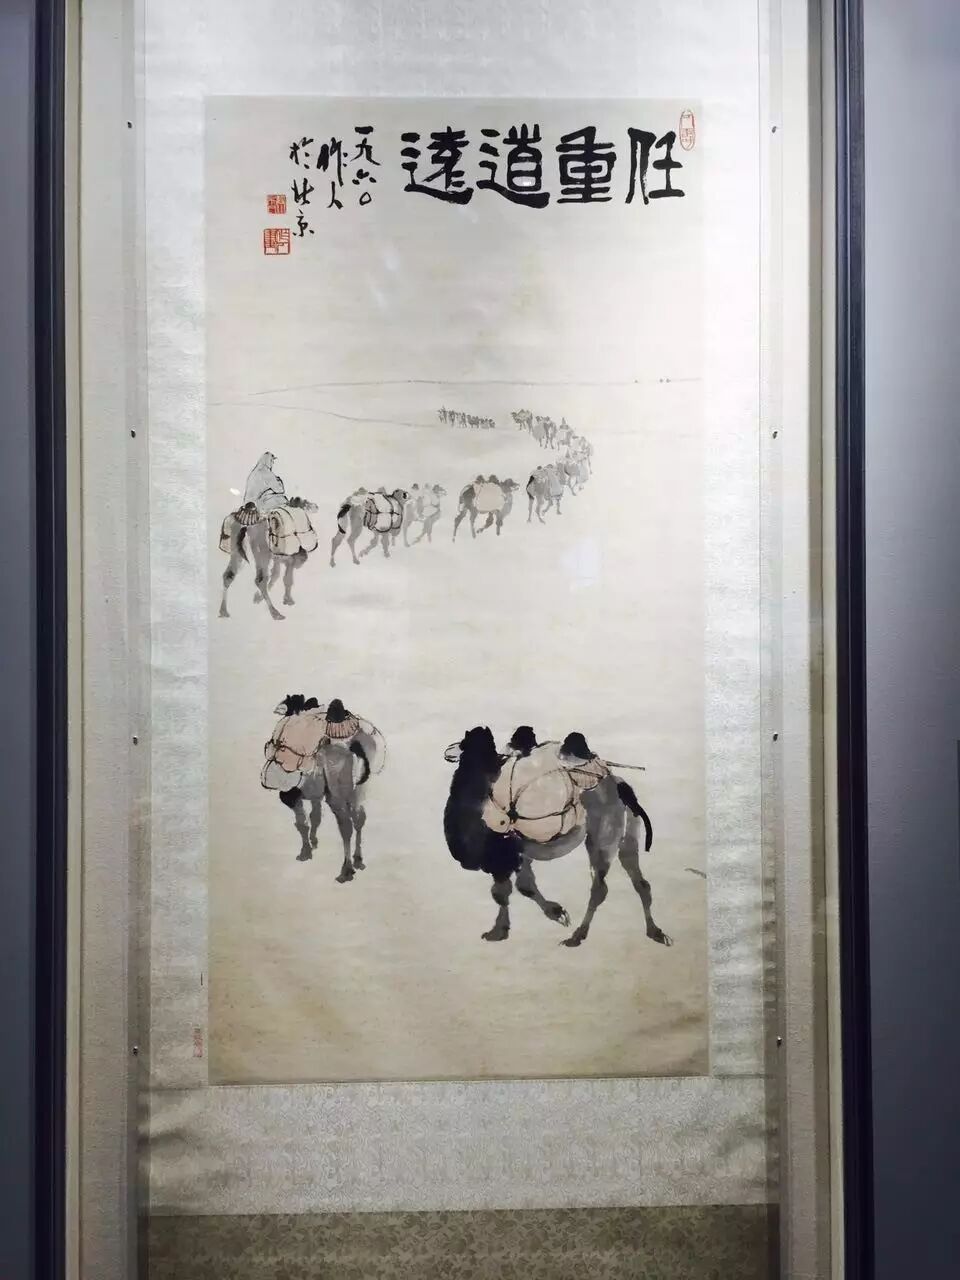 任重道遠
一九六〇
作人
於北京